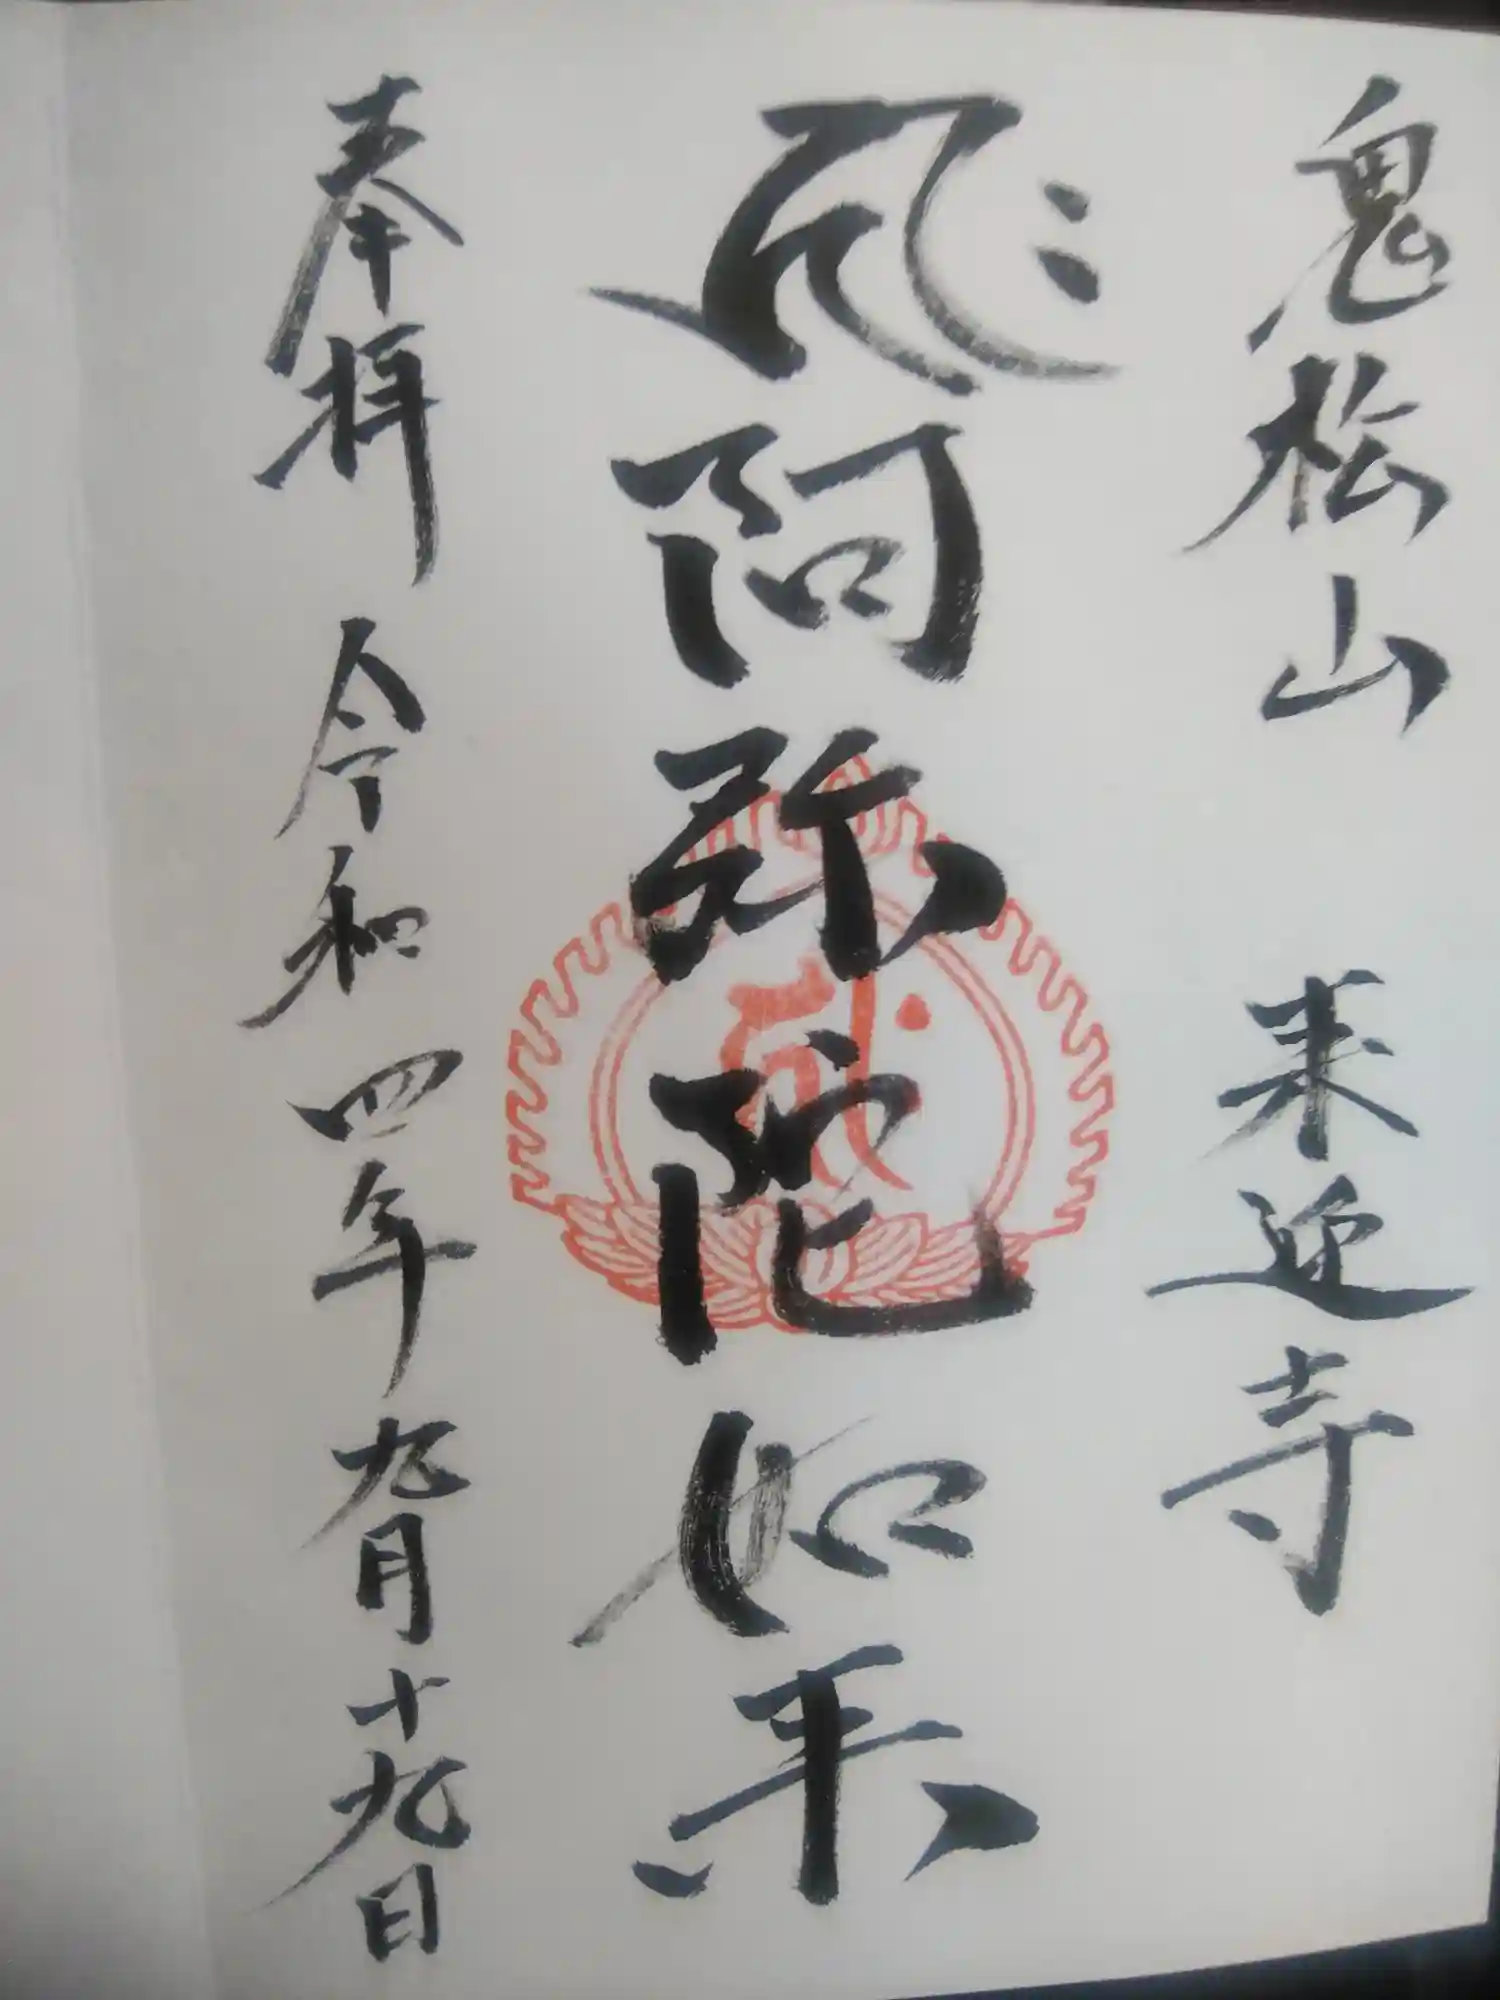 鬼桧山 来迎寺
𑖮𑖿𑖨𑖱𑖾 阿弥陀如来
奉拝 令和四年九月十九日